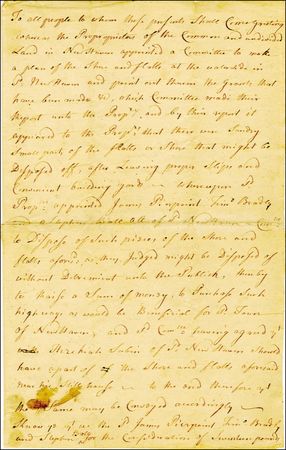 To all people to whom these presents Shall Come greeting
whereas the Propoprietors of the Common and undivided
Land in New Haven appointed a Committee to make
a plan of the Shore and flatts at the waterside in
Sd New Haven and point out thereon the Grants that
have ben made &c, which Committee made their
Report unto the Propr, and by their report it
appeared to the Propr, that there ware Sundry
Small parts of the flatts or Shore that might be
Disposed off, after Leaving proper Slips and
Convenient building yards — whereupon Sd
Propr appointed James Pierpoint
Stephen all of Sd New Haven
to Dispose of Such peices of the Shore and
flatts aforesd, as they Judged might be Disposed of
without Detriment unto the Publick, thereby
to Raise a Sum of money, to Purchase Such
highways as would be Benificial for Sd Town
of New Haven, and Sd having agreed yt
Hezekiah Sabin of Sd New Haven Should
have a part of the Shore and flatts aforesaid
near his Still house — to the end therefore yt
the Same may be Conveyed accordingly —
Know ye yt we the Sd James Pierpoint
and Stephen for the Consideration of Seventeen pounds